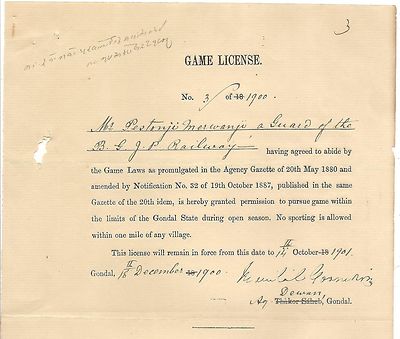 3
GAME LICENSE.
No. 3 of 18 1900.
Mr Pestonji Merwanji a Guard of the
B. G. J. P. Railway
having agreed to abide by
the Game Laws as promulgated in the Agency Gazette of 20th May 1880 and
amended by Notification No. 32 of 19th October 1887, published in the same
Gazette of the 20th idem, is hereby granted permission to pursue game within
the limits of the Gondal State during open season. No sporting is allowed
within one mile of any village.
This license will remain in force from this date to 14th October 18 1901.
Gondal, 18th December 18 1900.
Dewan
Ag Thakor Saheb, Gondal.